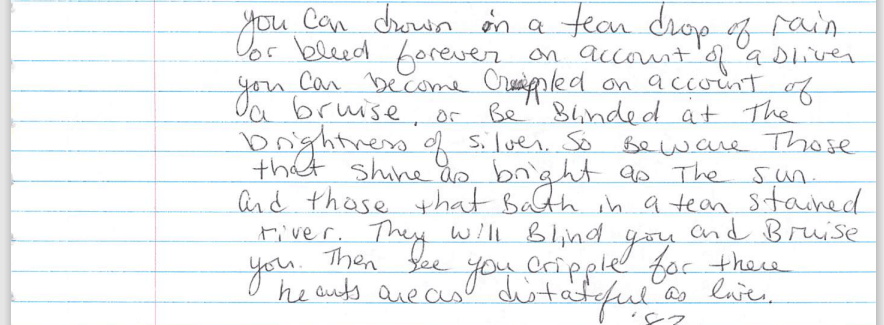 you can drown in a tear drop of rain
or bleed forever on account of a sliver
you can become crippled on account of
a bruise, or Be Blinded at The
brightness of silver. So Beware Those
that shine as bright as The sun.
and those that Bath in a tear stained
river. They will Blind you and Bruise
you. Then see you cripple for there
hearts are as distateful as liver.